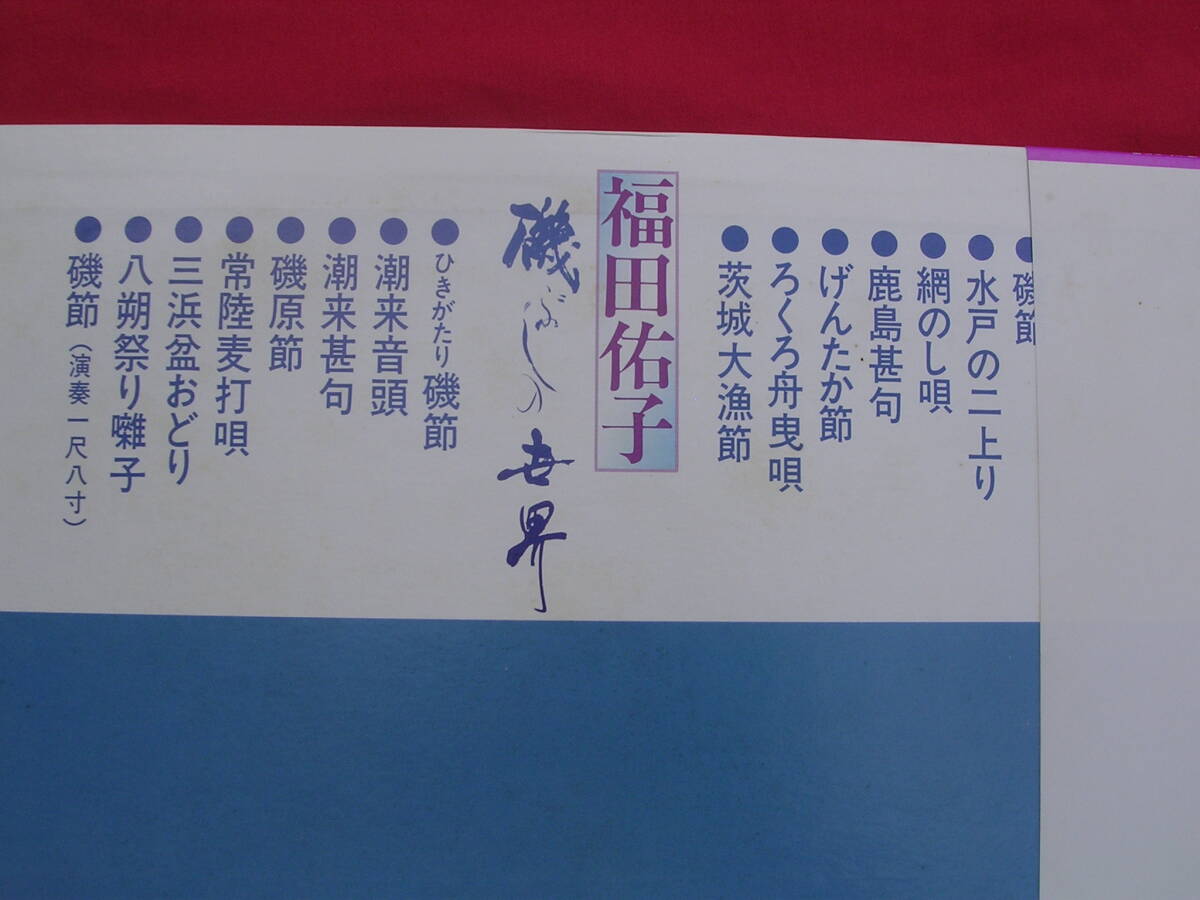 磯節
水戸の二上り
網のし唄
鹿島甚句
げんたか節
ろくろ舟曳唄
茨城大漁節
福田佑子
磯ぶしの世界
ひきがたり磯節
潮来音頭
潮来甚句
磯原節
常陸麦打唄
三浜盆おどり
八朔祭り囃子
磯節(演奏一尺八寸)